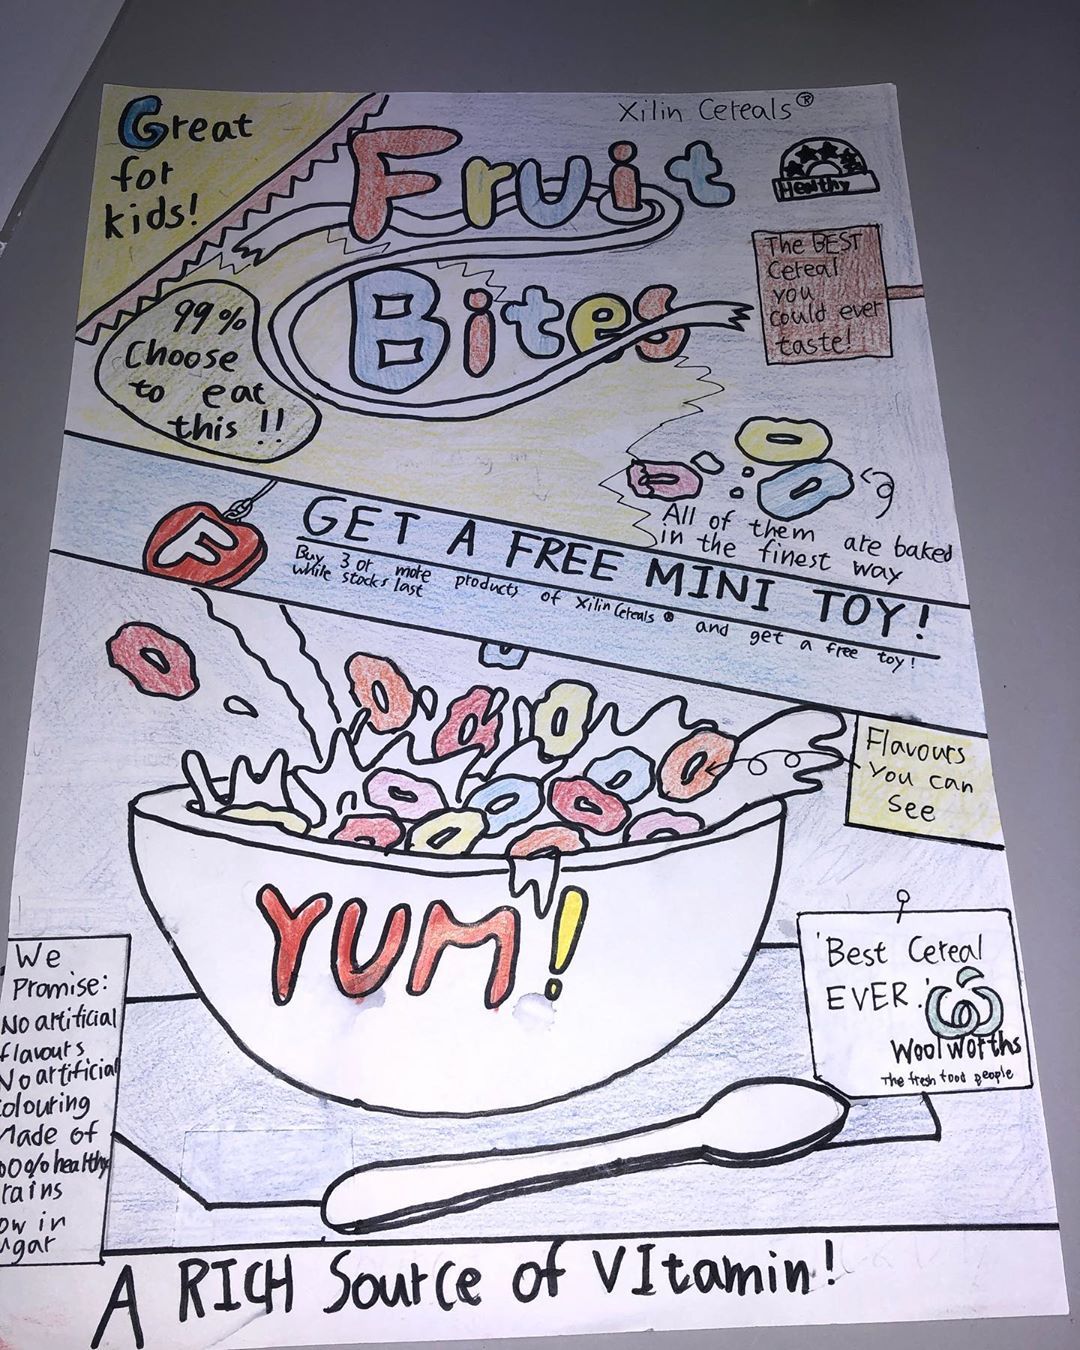 Great
for
kids!
Xilin Cereals®
Fruit
Bites
Healthy
The BEST
Cereal
you
could ever
taste!
99%
Choose
to eat
this !!
All of them are baked
in the finest way
F
GET A FREE MINI TOY!
Buy 3 or more products of Xilin Cereals® and get a free toy!
while stocks last
Flavours
you can
see
YUM!
We
Promise:
No artificial
flavours
No artificial
colouring
Made of
healthy
in
'Best Cereal
EVER.'
Woolworths
The fresh food people
A RICH Source of VItamin!